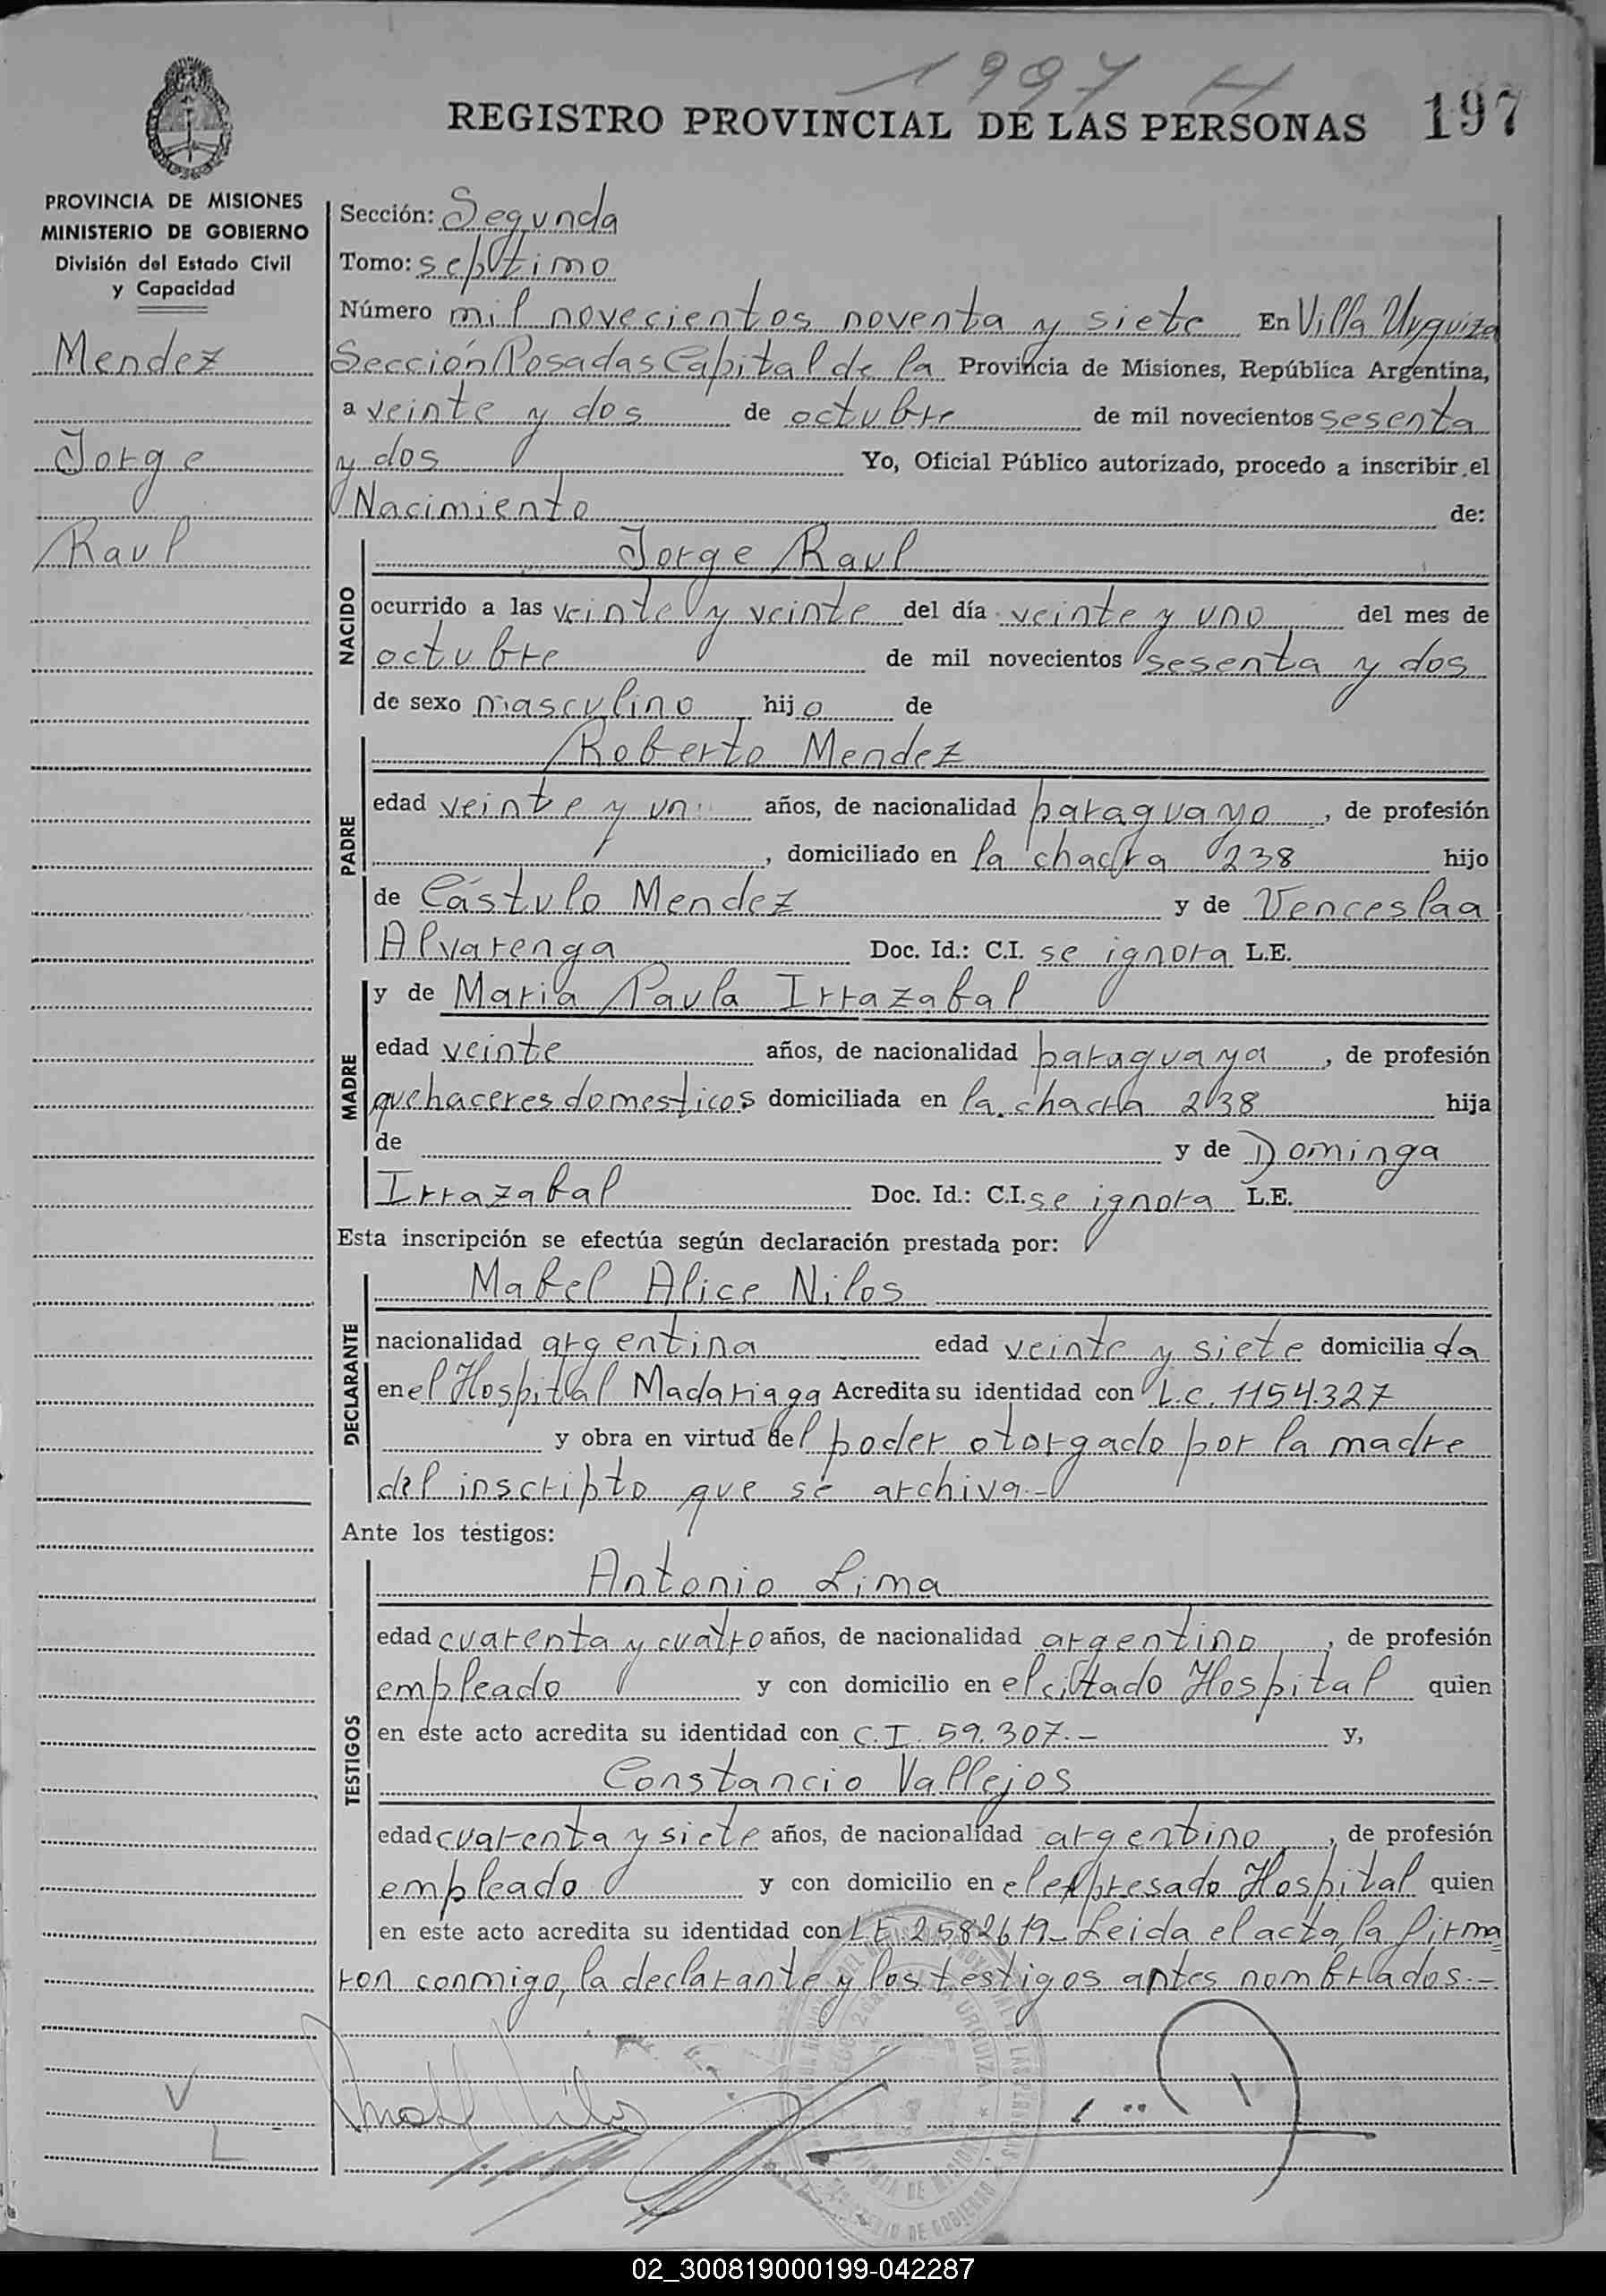 1997 H
REGISTRO PROVINCIAL DE LAS PERSONAS 197
PROVINCIA DE MISIONES
MINISTERIO DE GOBIERNO
División del Estado Civil
y Capacidad
Mendez
Jorge
Raul
Sección: Segunda
Tomo: septimo
Número mil novecientos noventa y siete En Villa Urquiza
Sección Posadas Capital de la Provincia de Misiones, República Argentina,
a veinte y dos de octubre de mil novecientos sesenta
y dos Yo, Oficial Público autorizado, procedo a inscribir el
Nacimiento de:
NACIDO
Jorge Raul
ocurrido a las veinte y veinte del día veinte y uno del mes de
octubre de mil novecientos sesenta y dos
de sexo masculino hijo de
PADRE
Roberto Mendez
edad veinte y un años, de nacionalidad paraguayo, de profesión
, domiciliado en la chacra 238 hijo
de Cástulo Mendez y de Venceslaa
Alvarenga Doc. Id.: C.I. se ignora L.E.
MADRE
y de Maria Paula Irrazabal
edad veinte años, de nacionalidad paraguaya, de profesión
quehaceres domesticos domiciliada en la chacra 238 hija
de y de Dominga
Irrazabal Doc. Id.: C.I. se ignora L.E.
Esta inscripción se efectúa según declaración prestada por:
DECLARANTE
Mabel Alice Nilos
nacionalidad argentina edad veinte y siete domiciliada
en el Hospital Madariaga Acredita su identidad con L.C. 1154.327
y obra en virtud del poder otorgado por la madre
del inscripto que se archiva.-
Ante los testigos:
TESTIGOS
Antonio Lima
edad cuarenta y cuatro años, de nacionalidad argentino, de profesión
empleado y con domicilio en el citado Hospital quien
en este acto acredita su identidad con C.I. 59.307.- y,
Constancio Vallejos
edad cuarenta y siete años, de nacionalidad argentino, de profesión
empleado y con domicilio en el expresado Hospital quien
en este acto acredita su identidad con L.E. 2582619- Leida el acta, la firma
ron conmigo, la declarante y los testigos antes nombrados.-
02_300819000199-042287